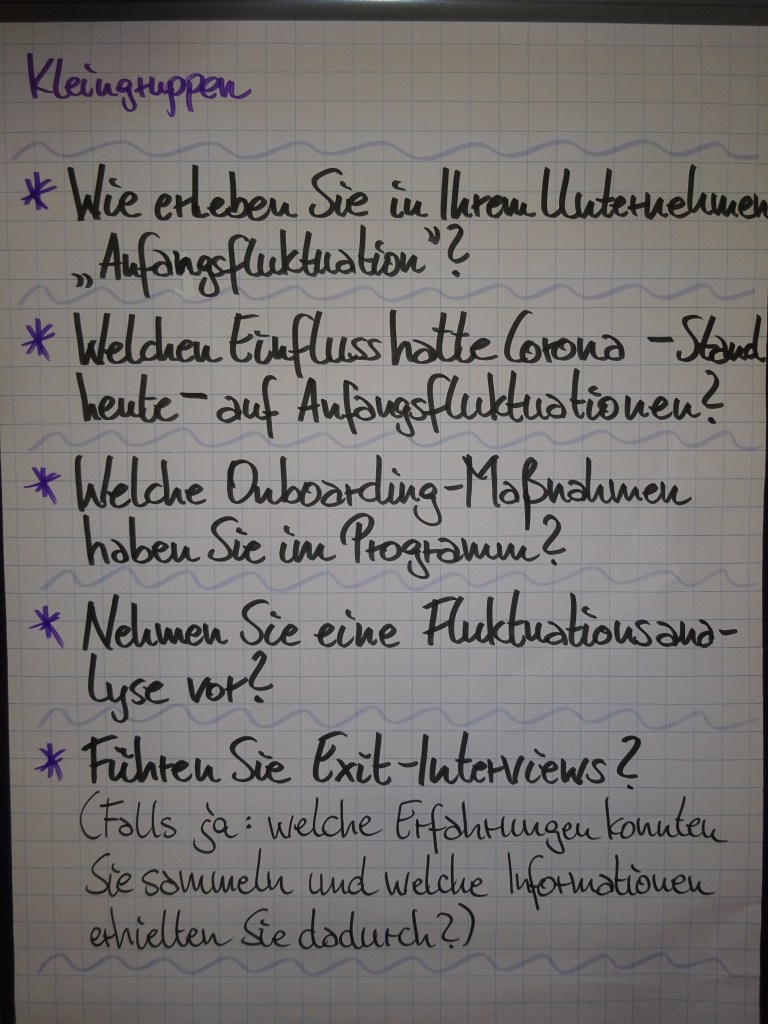 Kleingruppen
* Wie erleben Sie in Ihrem Unternehmen
„Anfangsfluktuation"?
* Welchen Einfluss hatte Corona - Stand
heute - auf Anfangsfluktuationen?
* Welche Onboarding-Maßnahmen
haben Sie im Programm?
* Nehmen Sie eine Fluktuationsana-
lyse vor?
* Führen Sie Exit-Interviews?
(Falls ja: welche Erfahrungen konnten
Sie sammeln und welche Informationen
erhielten Sie dadurch?)